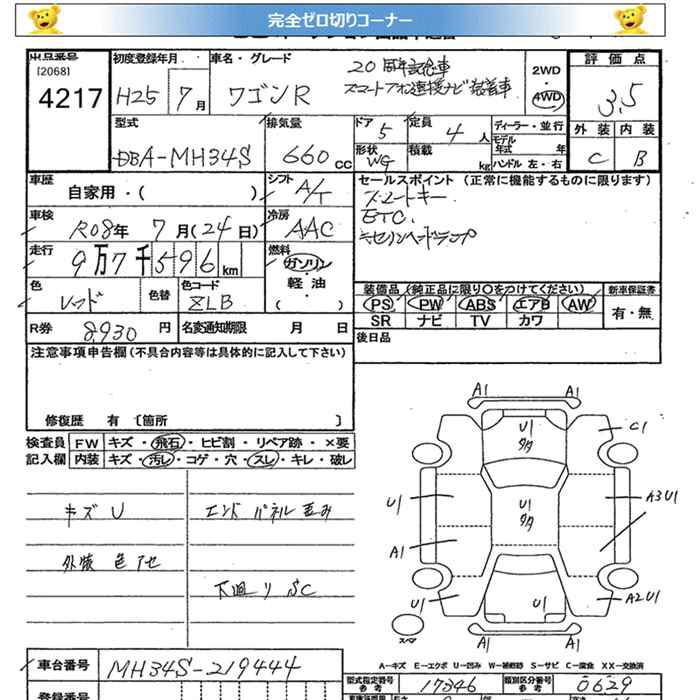 完全ゼロ切りコーナー
出品番号
[2068]
4217
初度登録年月
H25 7月
車名・グレード
ワゴンR
20周年記念車
スマートフォン連携ナビ装着車
2WD
4WD
評価点
3.5
外装 内装
C B
型式
DBA-MH34S
排気量
660 cc
ドア 5
形状 WG
定員 4 人
積載 kg
ディーラー・並行
モデル年式 年
ハンドル 左・右
車歴
自家用・( )
シフト A/T
車検
R08年 7月(24日)
冷房 AAC
走行
9万7千596km
燃料
ガソリン
軽油
( )
色 レッド
色替
色コード ZLB
R券 8,930円
名変通知期限 月 日
セールスポイント (正常に機能するものに限ります)
スマートキー
ETC
キセノンヘッドランプ
装備品 (純正品に限り○をつけてください)
PS PW ABS エアB AW
SR ナビ TV カワ
新車保証書
有・無
後日品
注意事項申告欄(不具合内容等は具体的に記入して下さい)
修復歴 有 〔箇所 〕
検査員記入欄
FW キズ・飛石・ヒビ割・リペア跡・×要
内装 キズ・汚レ・コゲ・穴・スレ・キレ・破レ
キズU
外装色アセ
エンドパネル歪み
下廻りSC
A1 A1
U1
タタ
C1
U1
U1
タタ
A3 U1
A1
U1
U1
A2 U1
A1 A1
スペア
A-キズ E-エクボ U-凹み W-補修跡 S-サビ C-腐食 XX-交換済
車台番号 MH34S-219444
型式指定番号 参考 17346
類別区分番号 参考 0629
登録番号